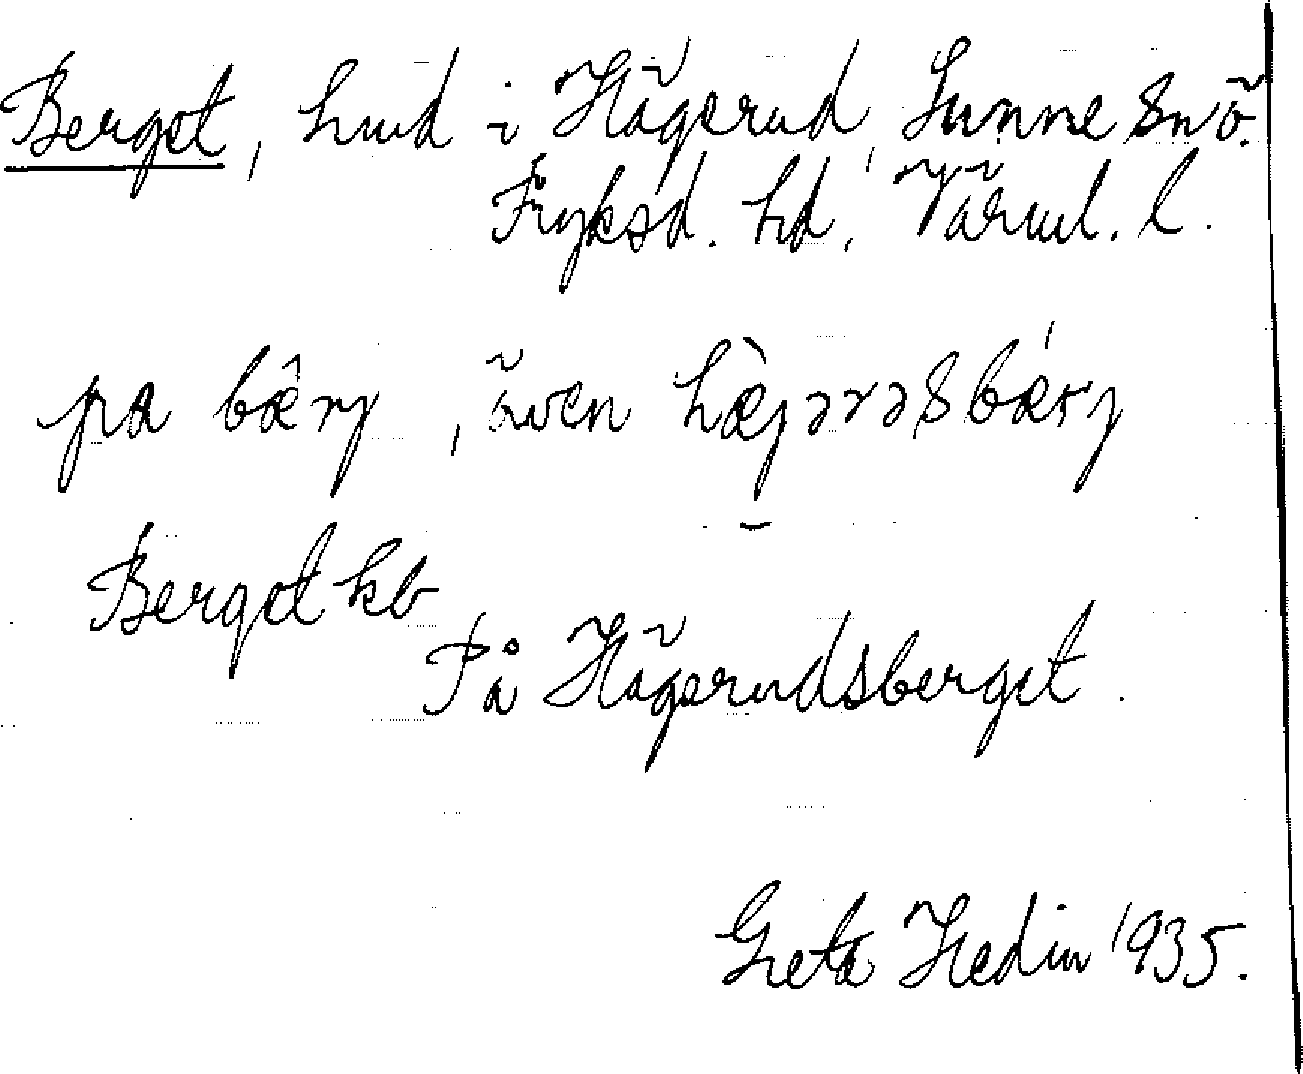 Berget, hmd i Hägerud, Sunne snö.
Fryksd. hd, Värml. l.
pa bæ̂rj, även hæ̀jərəsbǽrj
Berget kb
På Hägerudsberget.
Greta Hedin 1935.